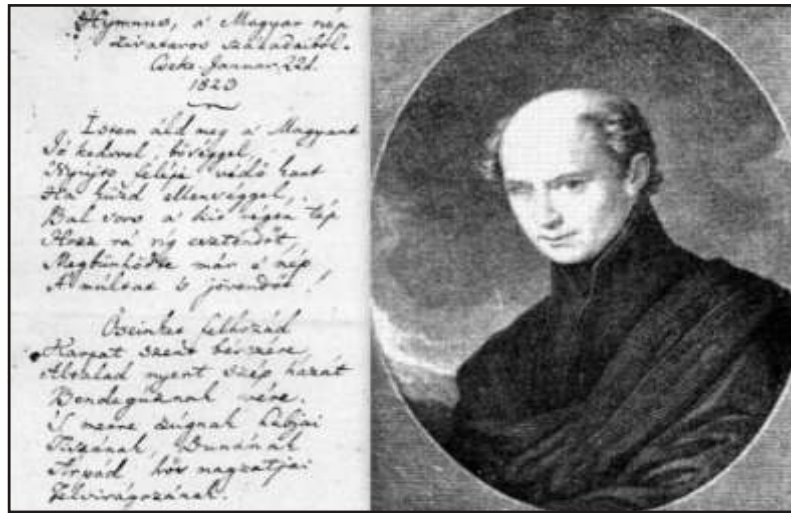 Hymnus, a' Magyar nép
zivataros századaiból.
Cseke. Januar. 22d.
1823
Isten áld meg a' Magyart
Jó kedvvel, bőséggel,
Nyújts feléje védő kart
Ha küzd ellenséggel,
Bal sors a' kit régen tép
Hozz rá víg esztendőt,
Megbünhödte már e' nép
A' múltat 's jövendőt!
Őseinket felhozád
Kárpát szent bérczére,
Általad nyert szép hazát
Bendegúznak vére.
'S merre zúgnak habjai
Tiszának, Dunának
Árpád hős magzatjai
Felvirágozának.